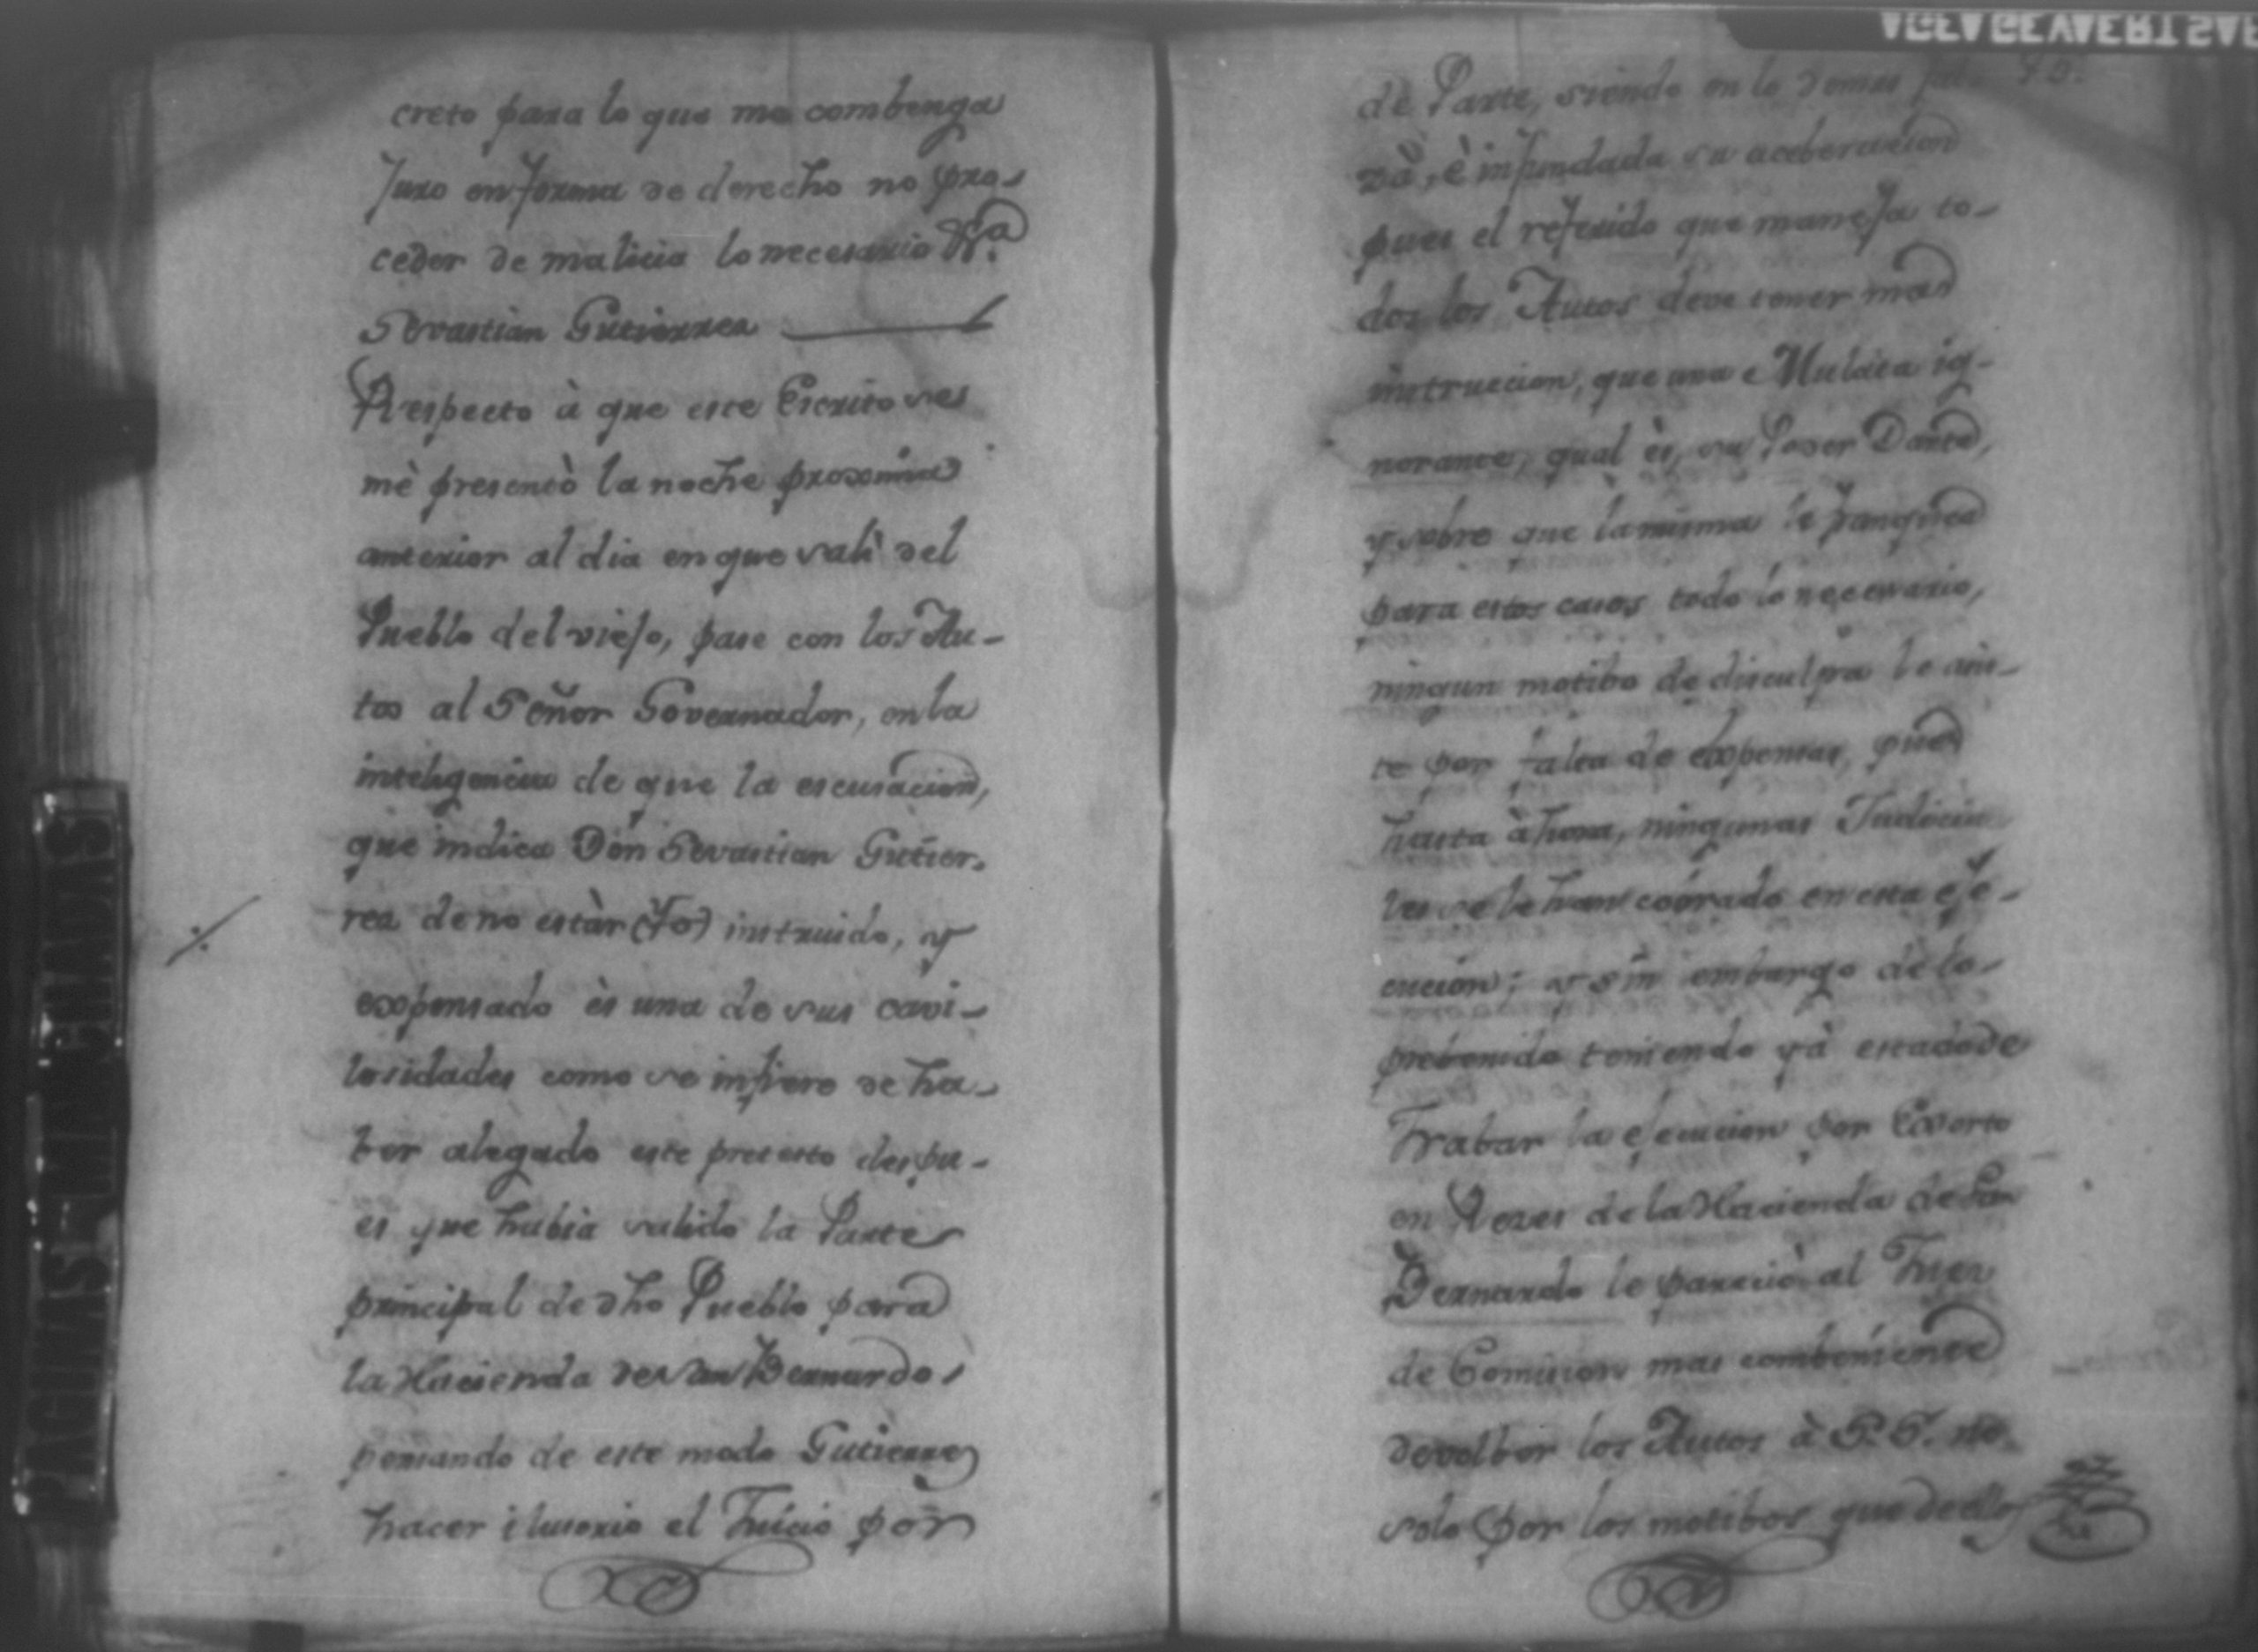 creto para lo que me combenga
Juro en forma de derecho no pro-
ceder de malicia lo necesario &ra
Sevastian Gutierrez
Respecto à que este Escrito se
mè presentò la noche proxima
anterior al dia en que salì del
Pueblo del viejo, pase con los Au-
tos al Señor Governador, en la
inteligencia de que la escusacion,
que indica Don Sevastian Gutier-
rez de no estàr (Yo) instruido, y
expensado ès una de sus cavi-
losidades como se infiere de ha-
ver alegado este pretesto despu-
es que habia salido la Parte
principal de dho Pueblo para
la Hacienda de San Bernardo
pensando de este modo Gutierrez
hacer ilusorio el Juicio por
de Parte, siendo en lo demas
è infundada su aceberacion
pues el referido que maneja to-
dos los Autos deve tener mas
instruccion, que una Mulata ig-
norante, qual ès, su Poder Dante,
y sobre que la misma le franquea
para estos casos todo lo necesario,
ningun motibo de disculpa le asis-
te por falta de expensas, pues
hasta àhora, ningunas Judicia
les se le han cobrado en esta eje-
cucion; y sin embargo de lo
prebenido teniendo yà estado de
Trabar la ejecucion por Exorto
en Rezes de la Hacienda de San
Bernardo le pareciò al Juez
de Comision mas combeniente
devolber los Autos à S. S. no
solo por los motibos que de ellos
PAGINAS MANCHADAS